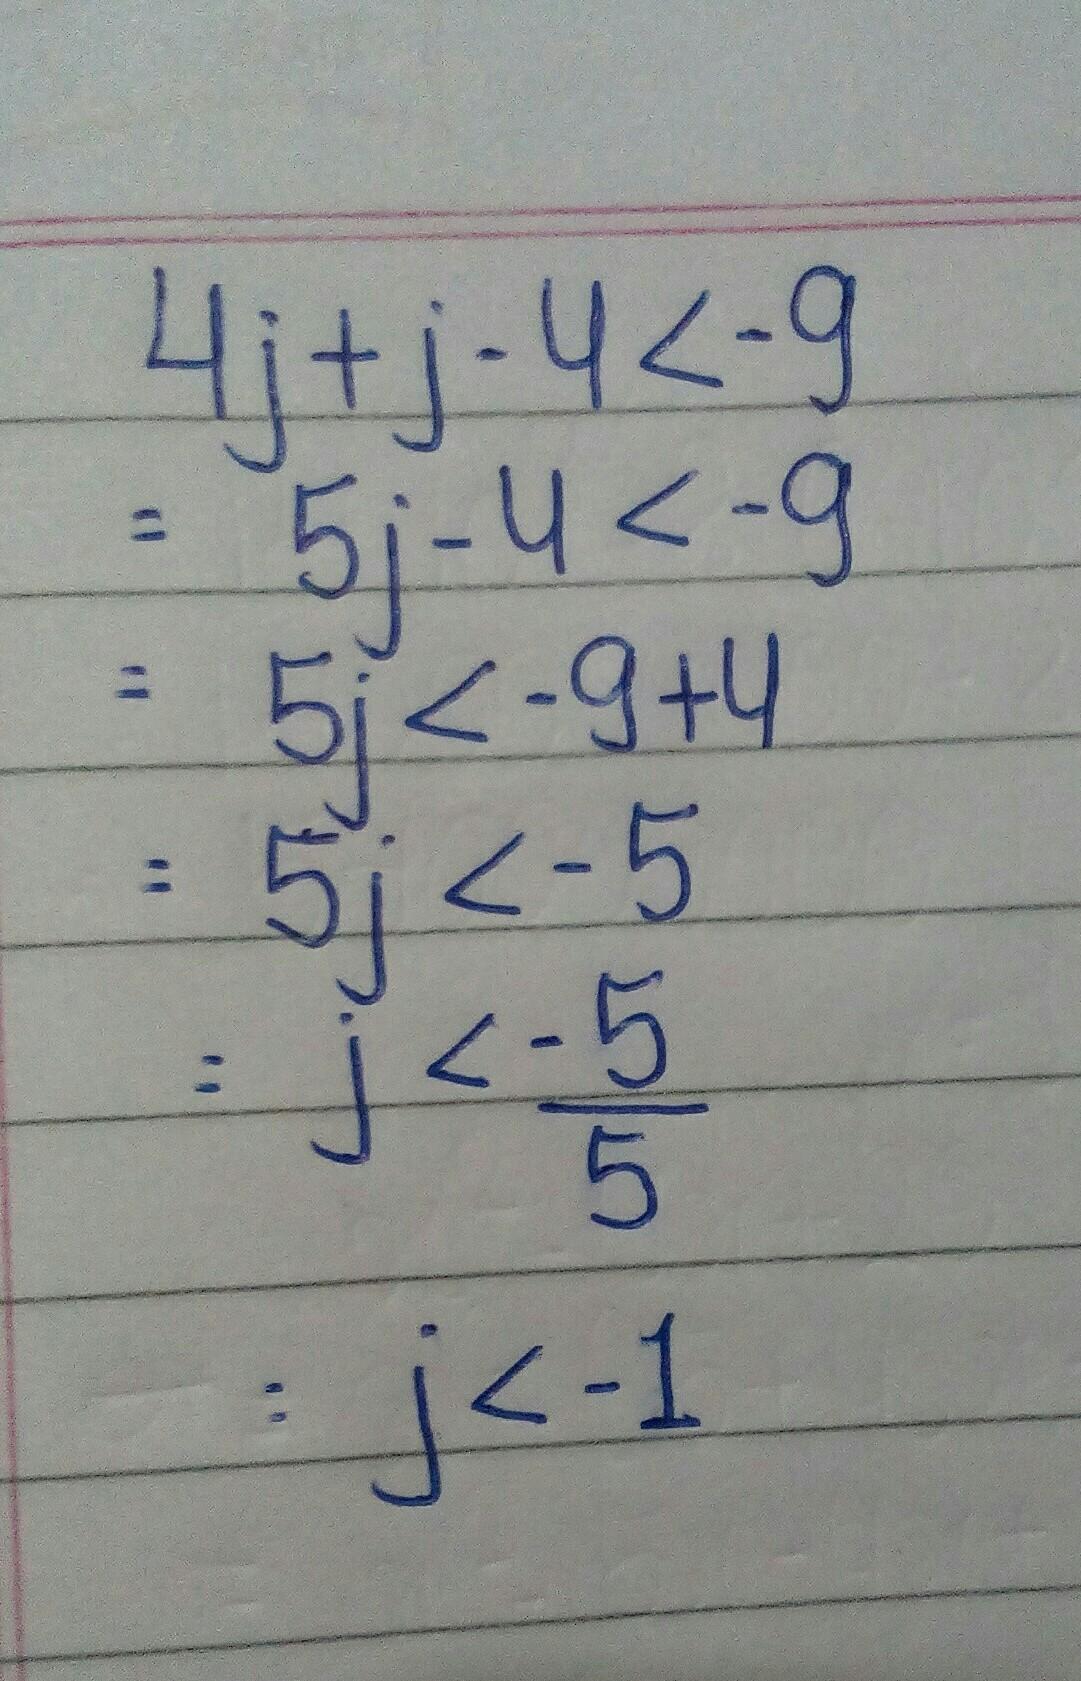 4j+j-4<-9
= 5j-4<-9
= 5j<-9+4
= 5j<-5
= j<-5/5
= j<-1